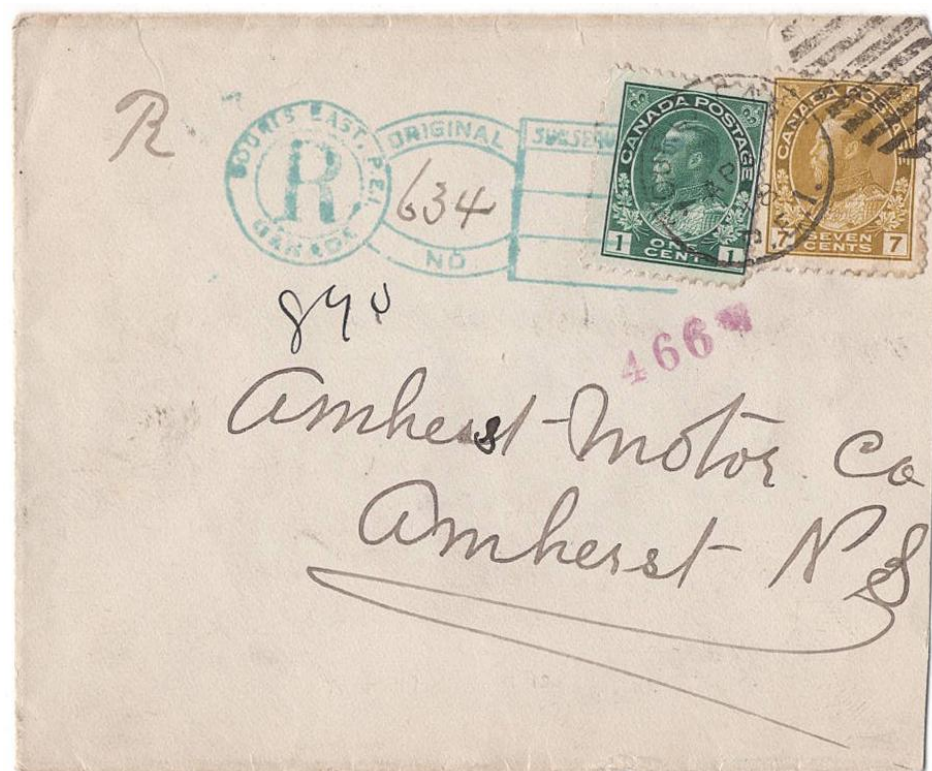 R
SOURIS EAST, P.E.I.
R
CANADA
ORIGINAL
634
NO
CANADA POSTAGE
1 ONE CENT 1
CANADA POSTAGE
7 SEVEN CENTS 7
P.E.I.
466
Amherst Motor Co
Amherst N S